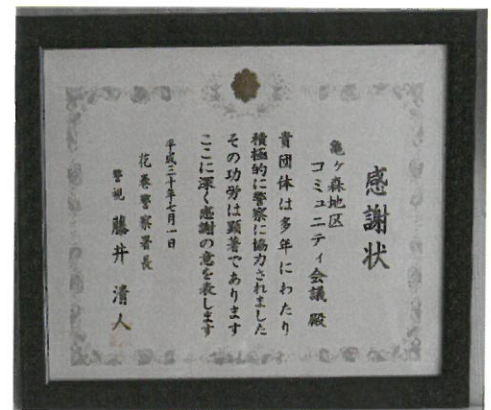 感謝状
亀ケ森地区
コミュニティ会議 殿
貴団体は多年にわたり
積極的に警察に協力されました
その功労は顕著であります
ここに深く感謝の意を表します
平成三十年七月一日
花巻警察署長
警視 藤井清人